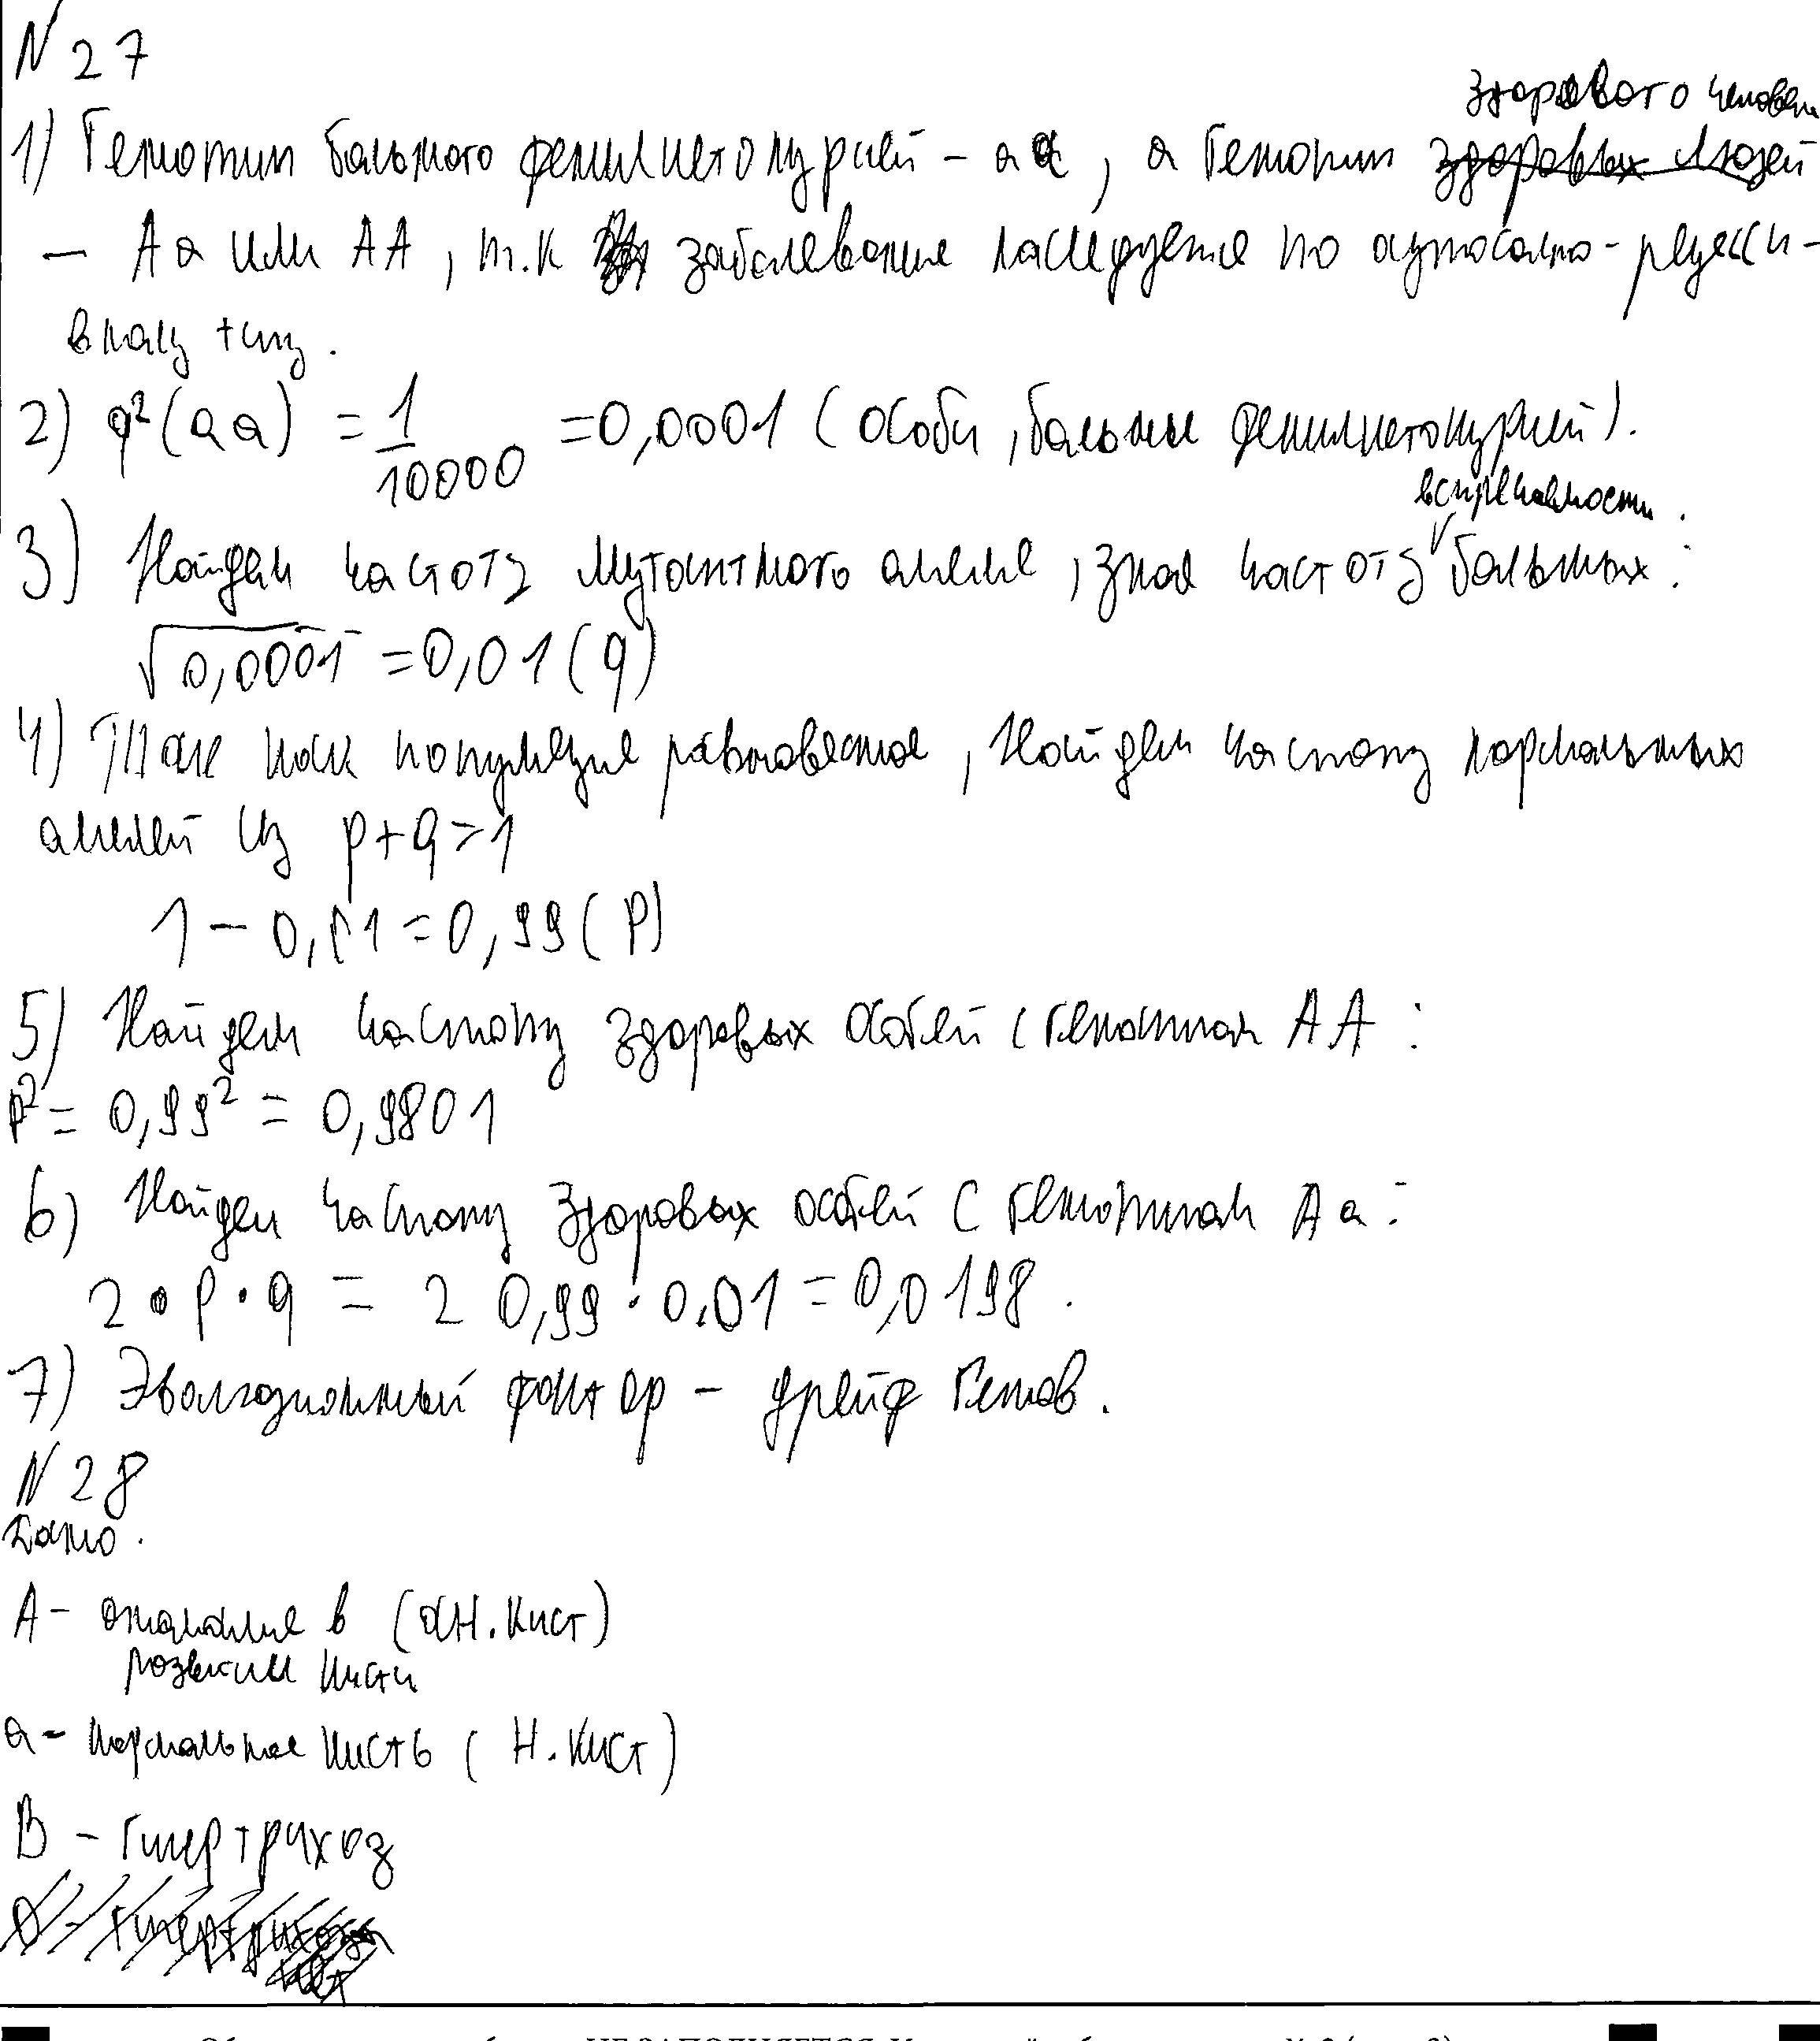 N 27
здорового человека
1) Генотип больного фенилкетонурией - аа, а генотип здоровых людей
— Аа или АА, т.к заболевание наследуется по аутосомно-рецесси-
вному типу.
2) q²(аа) = 1/10000 = 0,0001 (особи, больные фенилкетонурией).
встречаемости
3) Найдем частоту мутантного аллеля, зная частоту больных:
√0,0001 = 0,01 (q)
4) Так как популяция равновесная, найдем частоту нормальных
аллелей из p+q=1
1 - 0,01 = 0,99 (p)
5) Найдем частоту здоровых особей с генотипом АА:
p² = 0,99² = 0,9801
6) Найдем частоту здоровых особей с генотипом Аа:
2 • p • q = 2 0,99 · 0,01 = 0,0198.
7) Эволюционный фактор - дрейф генов.
N 28
Дано.
А - отклонение в (ан.кист)
развитии кисти
а - нормальная кисть (н.кист)
В - гипертрихоз